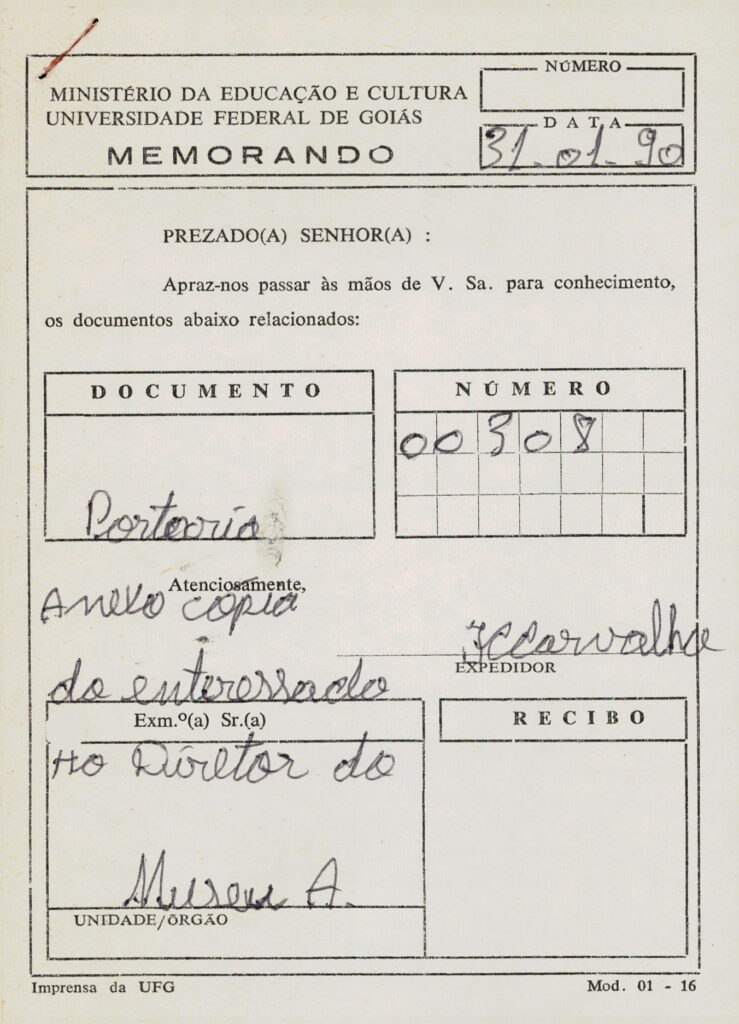 NÚMERO
MINISTÉRIO DA EDUCAÇÃO E CULTURA
UNIVERSIDADE FEDERAL DE GOIÁS
MEMORANDO
DATA
31-01-90
PREZADO(A) SENHOR(A) :
Apraz-nos passar às mãos de V. Sa. para conhecimento,
os documentos abaixo relacionados:
DOCUMENTO
NÚMERO
00308
Portaria
Atenciosamente,
Anexo cópia
JCCarvalho
EXPEDIDOR
do enteressado
Exm.º(a) Sr.(a)
RECIBO
Ao Diretor do
Museu A.
UNIDADE/ÓRGÃO
Imprensa da UFG
Mod. 01 - 16